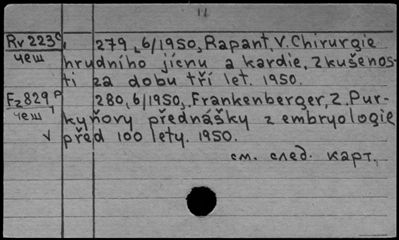 11
Rv223c 279, 6/1950, Rapant, V. Chirurgie
чеш hrudního jícnu a kardie, Zkušenos-
ti za dobu tří let. 1950.
Fz829p 280, 6/1950, Frankenberger, Z. Pur-
чеш kyňovy přednášky z embryologie
v před 100 lety. 1950.
см. след. карт.